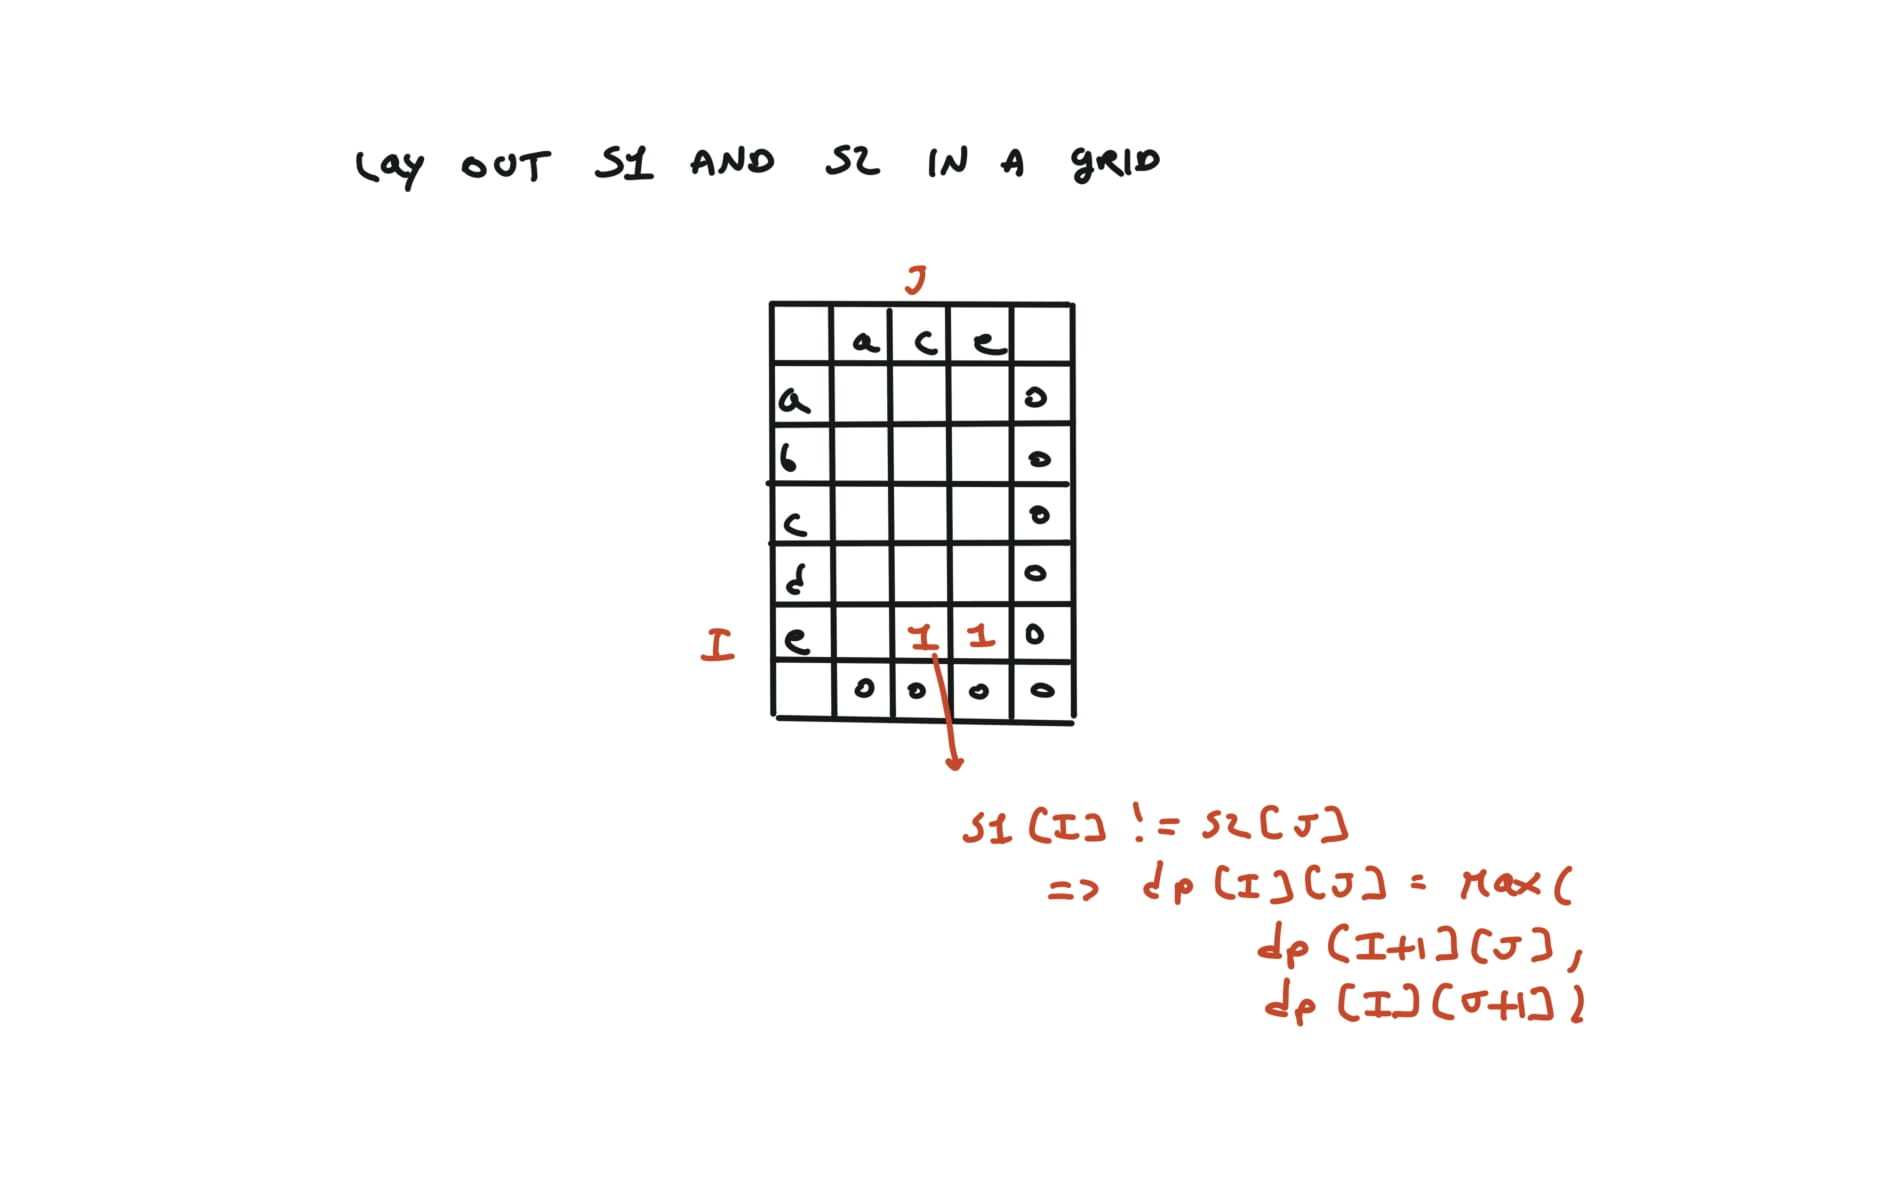 Lay OUT S1 AND S2 IN A GRID
J
a c e
a 0
b 0
c 0
d 0
I e 1 1 0
0 0 0 0
S1[I] != S2[J]
=> dp[I][J] = Max(
dp[I+1][J],
dp[I][J+1])